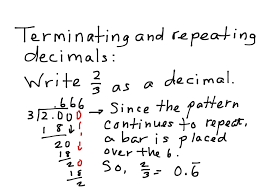 Terminating and repeating
decimals:
Write 2/3 as a decimal.
.666
3 2.000 → Since the pattern
18↓ continues to repeat,
20↓ a bar is placed
18 over the 6.
20 So, 2/3 = 0.6̅
18
2